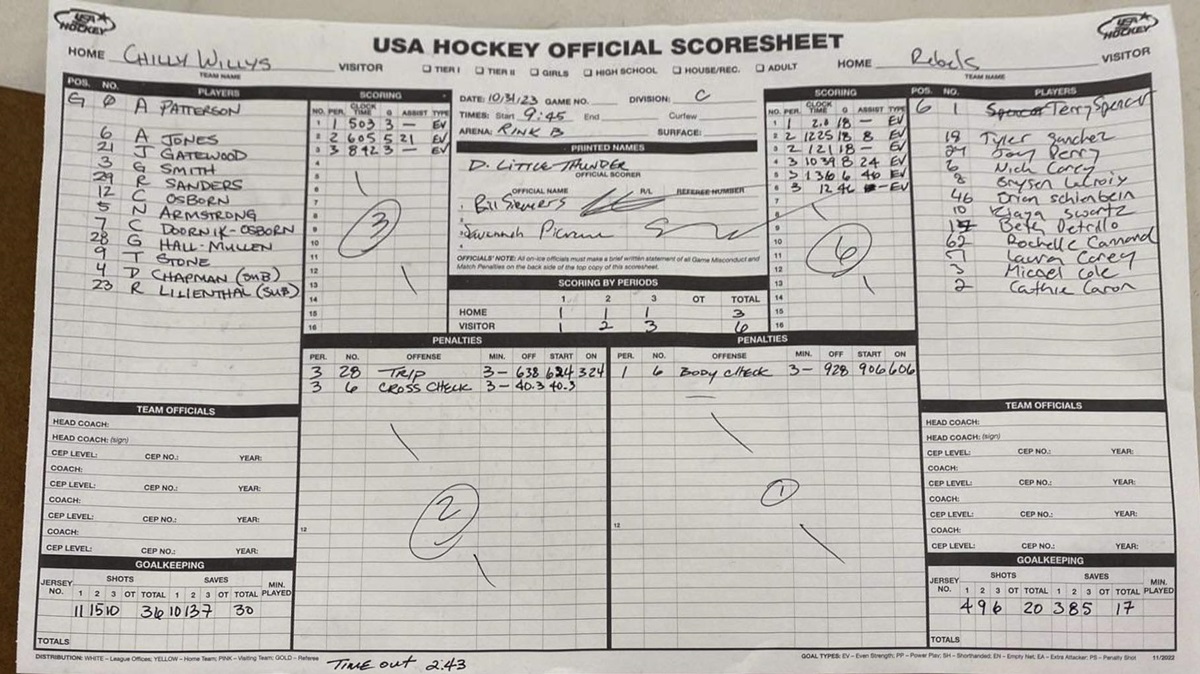 USA HOCKEY
USA HOCKEY
USA HOCKEY OFFICIAL SCORESHEET
HOME CHILLY WILLYS VISITOR
TEAM NAME
☐ TIER I ☐ TIER II ☐ GIRLS ☐ HIGH SCHOOL ☐ HOUSE/REC. ☐ ADULT
HOME Rebels VISITOR
TEAM NAME
POS. NO. PLAYERS
G 0 A PATTERSON
6 A JONES
21 J GATEWOOD
3 G SMITH
29 R SANDERS
12 C OSBORN
5 N ARMSTRONG
7 C DOORNIK-OSBORN
28 G HALL-MULLEN
9 T STONE
4 D CHAPMAN (SUB)
23 R LILIENTHAL (SUB)
SCORING
NO. PER. CLOCK TIME G ASSIST TYPE
1 1 503 3 — EV
2 2 605 5 21 EV
3 3 842 3 — EV
4
5
6
7
8
9
10
11
12
13
14
15
16
3
DATE: 10/31/23 GAME NO. DIVISION: C
TIMES: Start 9:45 End Curfew
ARENA: RINK B SURFACE:
PRINTED NAMES
D. LITTLE THUNDER
OFFICIAL SCORER
OFFICIAL NAME R/L REFEREE NUMBER
1. Bill
2. Savannah
3.
4.
OFFICIALS' NOTE: All on-ice officials must make a brief written statement of all Game Misconduct and
Match Penalties on the back side of the top copy of this scoresheet.
SCORING BY PERIODS
1 2 3 OT TOTAL
HOME 1 1 1 3
VISITOR 1 2 3 6
SCORING
NO. PER. CLOCK TIME G ASSIST TYPE
1 1 2.8 18 — EV
2 2 1225 18 8 EV
3 2 121 18 — EV
4 3 1039 8 24 EV
5 3 136 6 46 EV
6 3 12 46 — EV
7
8
9
10
11
12
13
14
15
16
6
POS. NO. PLAYERS
G 1 Terry Spencer
18 Tyler Sanchez
24 Jay Perry
6 Nick Corey
8 Bryson LaCroix
46 Orion Schienbein
10 Swartz
Beth Detrillo
62 Rochelle Cannand
Laura Corey
3 Michel Cole
2 Cathie Caron
PENALTIES
PER. NO. OFFENSE MIN. OFF START ON
3 28 TRIP 3 — 638 624 324
3 6 CROSS CHECK 3 — 40.3 40.3
12
2
PENALTIES
PER. NO. OFFENSE MIN. OFF START ON
1 6 BODY CHECK 3 — 928 906 606
12
1
TEAM OFFICIALS
HEAD COACH:
HEAD COACH: (sign)
CEP LEVEL: CEP NO.: YEAR:
COACH:
CEP LEVEL: CEP NO.: YEAR:
COACH:
CEP LEVEL: CEP NO.: YEAR:
COACH:
CEP LEVEL: CEP NO.: YEAR:
TEAM OFFICIALS
HEAD COACH:
HEAD COACH: (sign)
CEP LEVEL: CEP NO.: YEAR:
COACH:
CEP LEVEL: CEP NO.: YEAR:
COACH:
CEP LEVEL: CEP NO.: YEAR:
COACH:
CEP LEVEL: CEP NO.: YEAR:
GOALKEEPING
JERSEY NO. SHOTS 1 2 3 OT TOTAL SAVES 1 2 3 OT TOTAL MIN. PLAYED
11 15 10 36 10 13 7 30
TOTALS
GOALKEEPING
JERSEY NO. SHOTS 1 2 3 OT TOTAL SAVES 1 2 3 OT TOTAL MIN. PLAYED
4 9 6 20 3 8 5 17
TOTALS
DISTRIBUTION: WHITE – League Offices; YELLOW – Home Team; PINK – Visiting Team; GOLD – Referee
TIME OUT 2:43
GOAL TYPES: EV – Even Strength; PP – Power Play; SH – Shorthanded; EN – Empty Net; EA – Extra Attacker; PS – Penalty Shot 11/2022